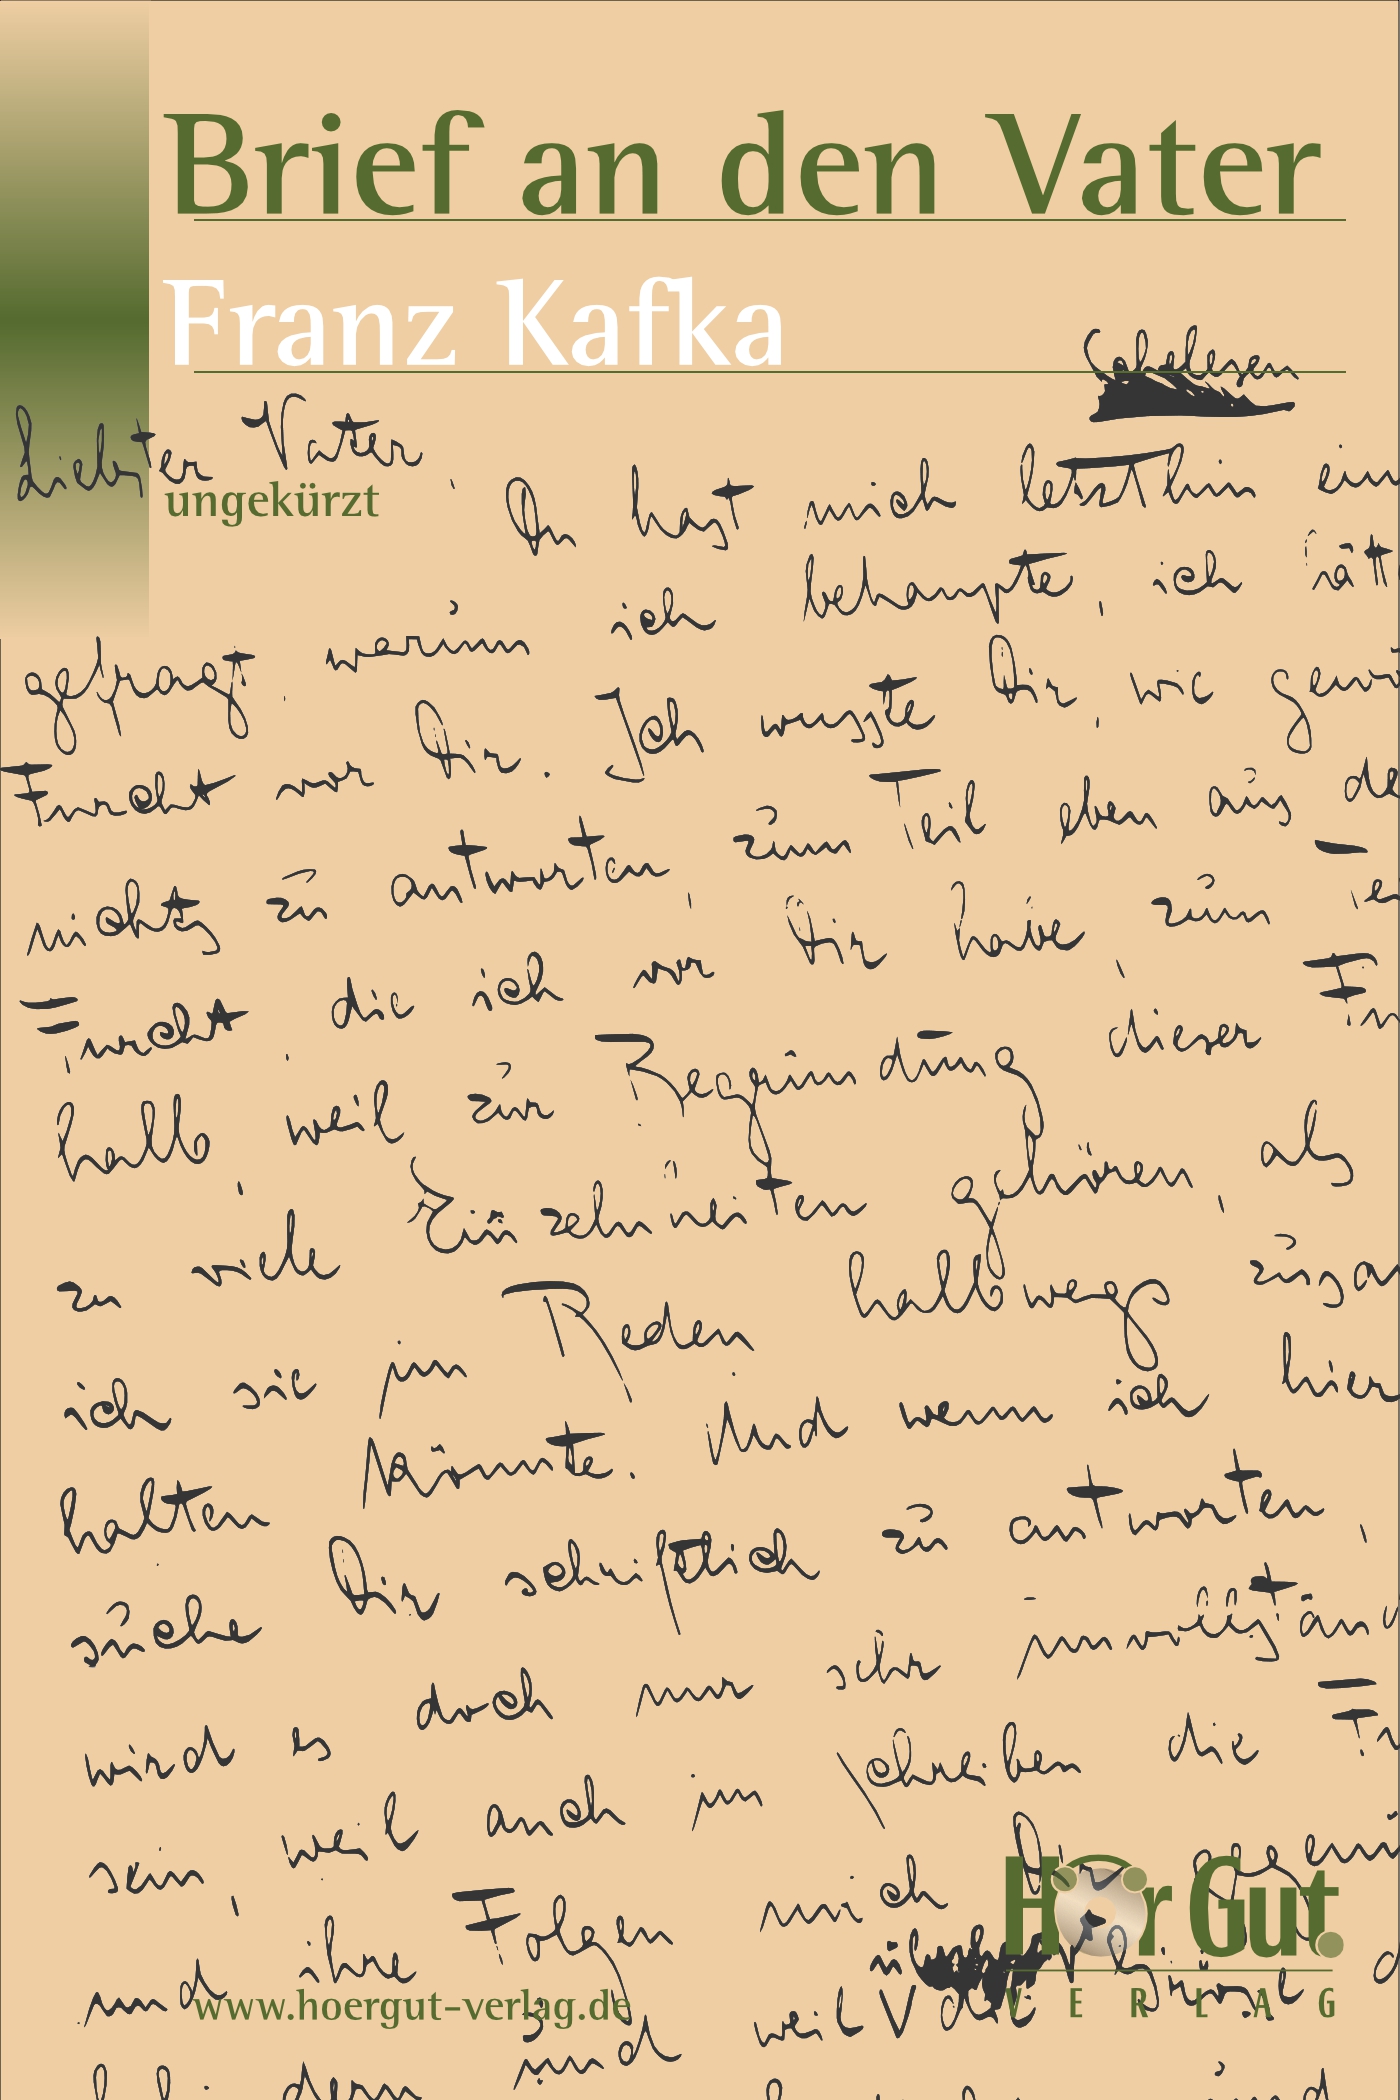 Brief an den Vater
Franz Kafka
Schelesen
Liebster Vater,
ungekürzt
Du hast mich letzthin ein
gefragt, warum ich behaupte, ich hätt
Furcht vor Dir. Ich wusste Dir, wie gewö
nichts zu antworten, zum Teil eben aus de
Furcht, die ich vor Dir habe, zum Te
halb, weil zur Begründung dieser Fu
zu viele Einzelnheiten gehören, als
ich sie im Reden halbwegs zusa
halten könnte. Und wenn ich hier
suche Dir schriftlich zu antworten,
wird es doch nur sehr unvollständ
sein, weil auch im Schreiben die Fu
und ihre Folgen mich Dir gegenü
Hör Gut
VERLAG
www.hoergut-verlag.de
und weil